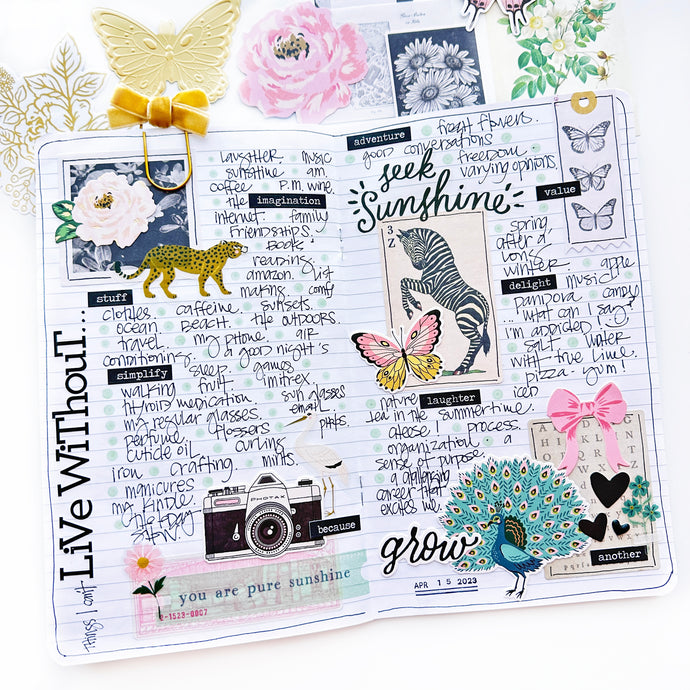 Things I can't
LiVe WiThouT...
laughter music
sunshine am
coffee p.m. wine.
the imagination
internet family
friendships.
book
reading.
amazon. list
making comfy
stuff
clothes. caffeine. sunsets.
ocean. beach. the outdoors.
travel. my phone. air
conditioning. a good night's
simplify sleep games
walking fruit. imitrex
thyroid medication sun glasses
my regular glasses. email.
perfume. flossers plants.
cuticle oil. curling
iron crafting. mints.
manicures
my kindle.
PHOTAX
because
you are pure sunshine
-1523-0007
adventure fresh flowers.
good conversations
freedom.
varying opinions.
seek
Sunshine
value
3
Z
spring,
after a
long
winter. apple
delight music
pandora candy
... what can I say?
I'm addicted!
salt water
with true lime.
pizza - yum!
nature laughter iced
tea in the summertime.
cheese! process.
organization. a
sense of purpose
a challenging
career that
excites me.
grow
APR 15 2023
another